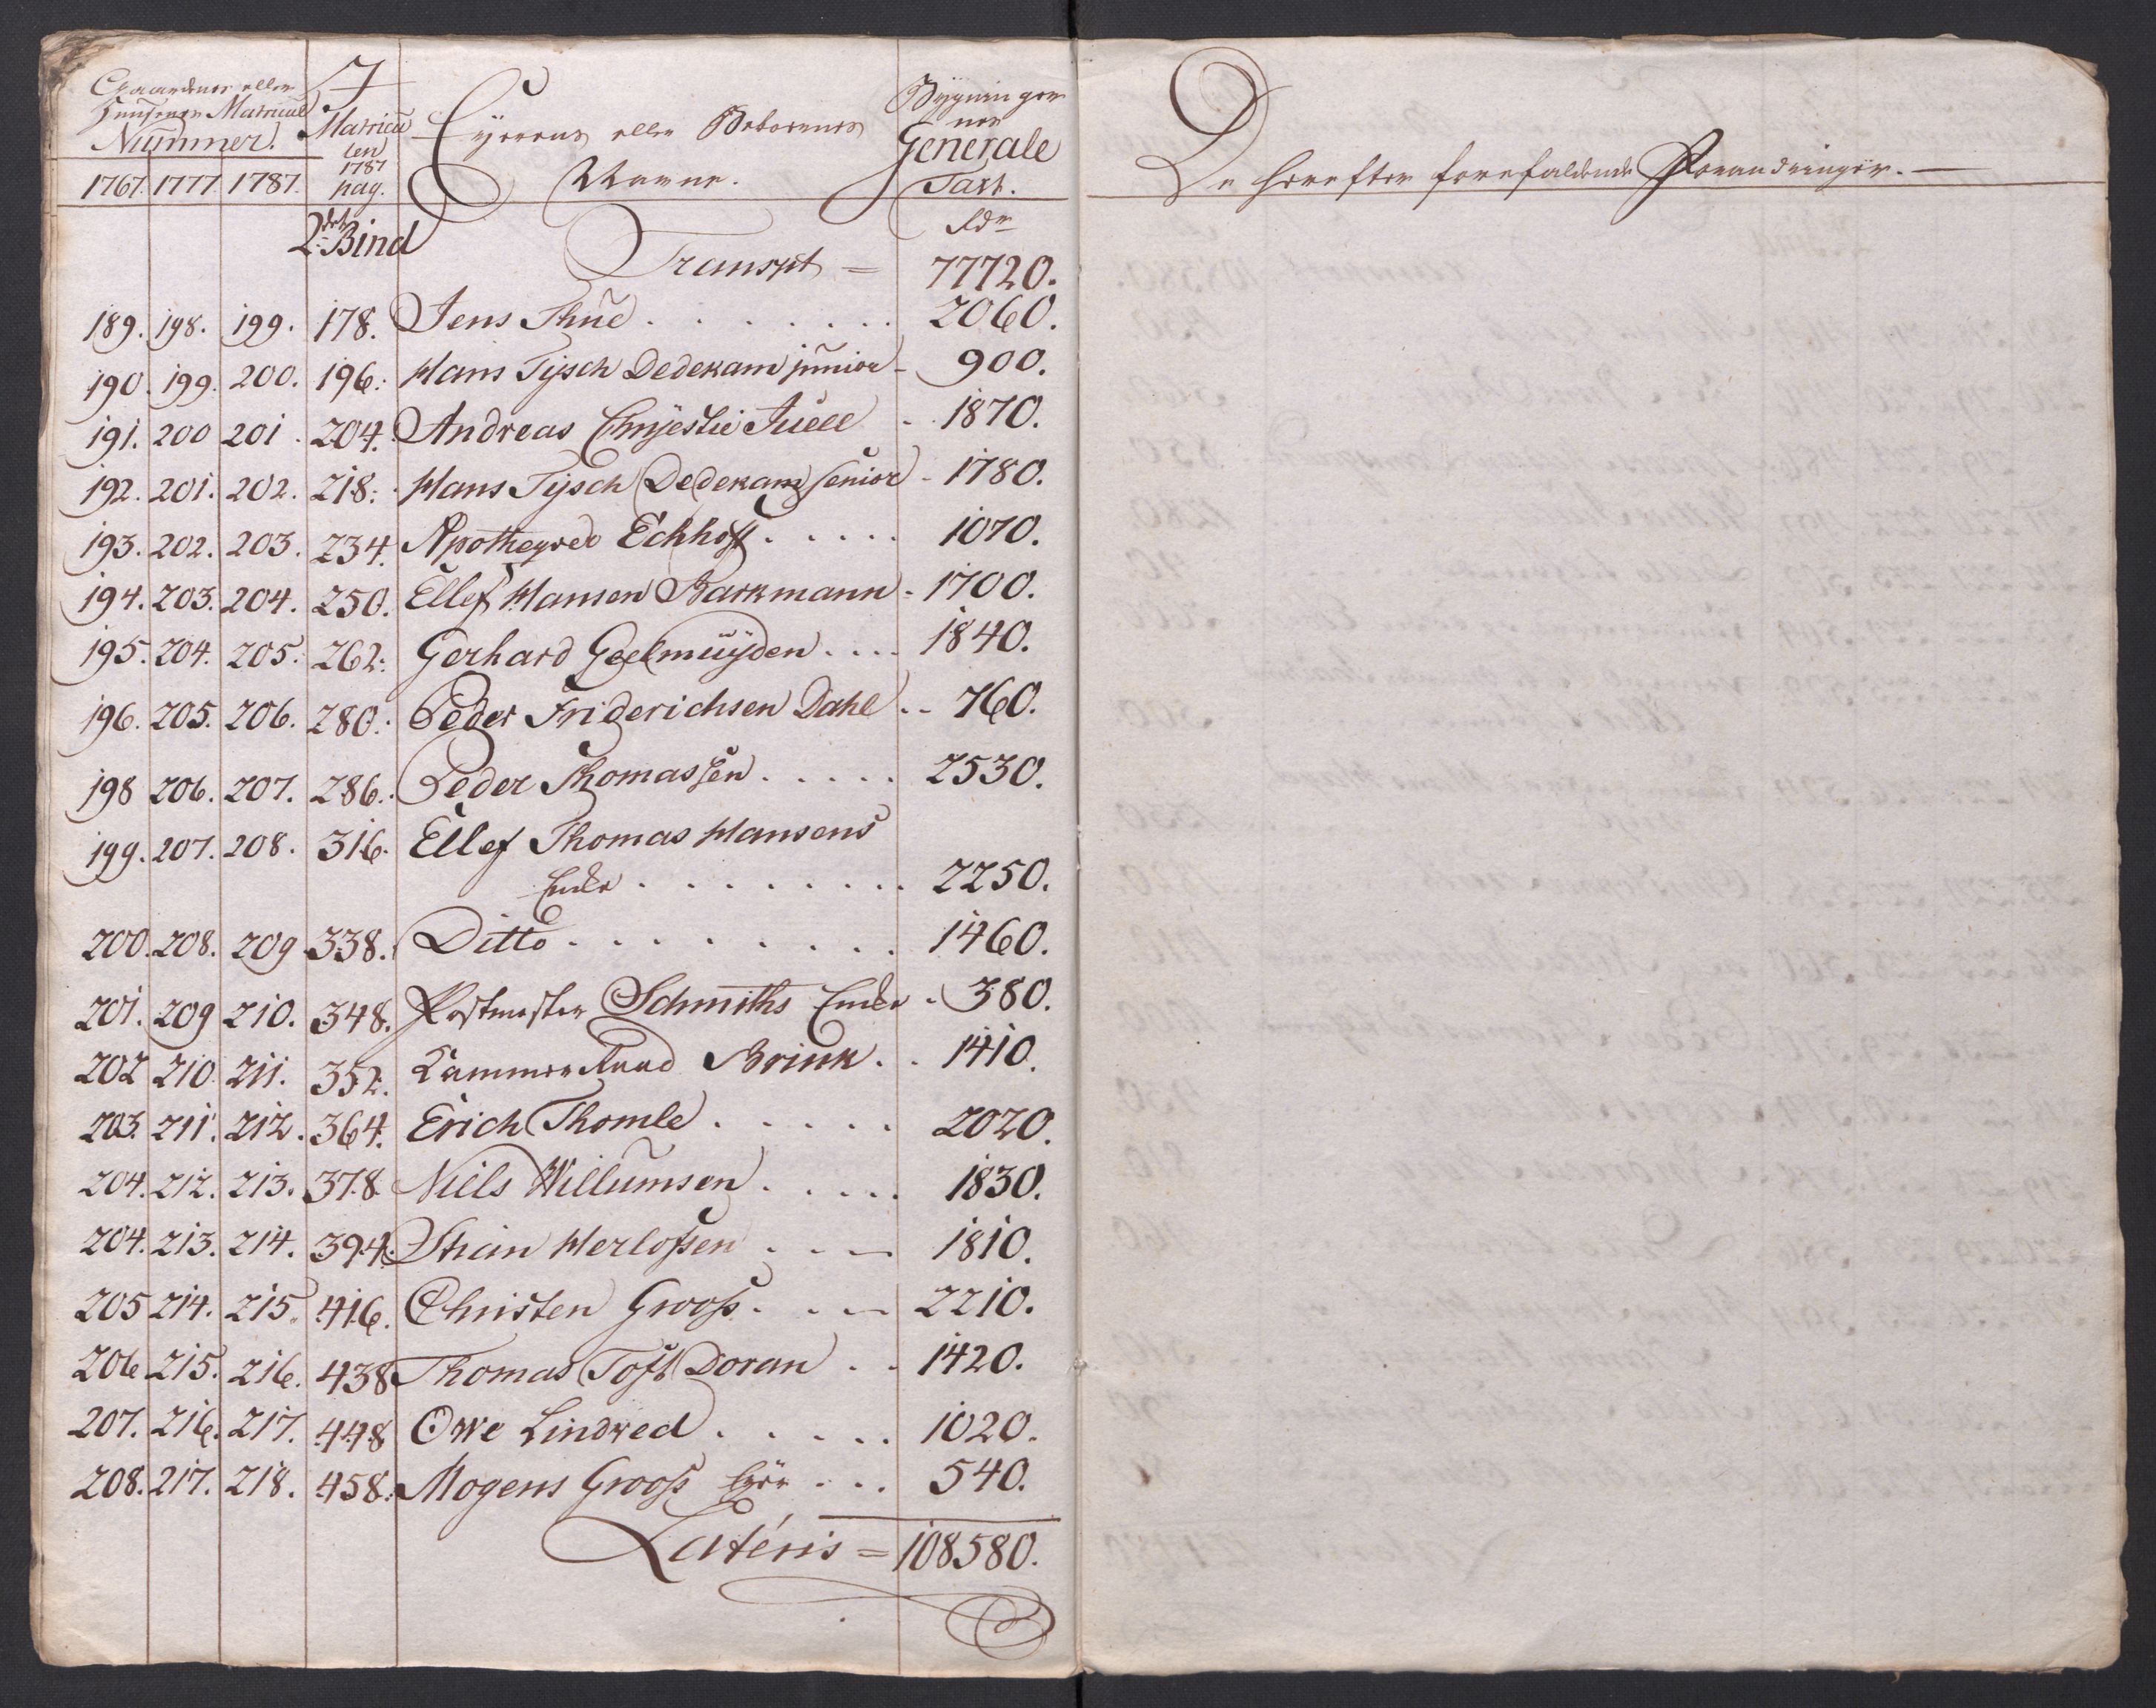 Gaardenes eller
Huusenes Matricul
Nummer.
I
Matricu
len
1787
pag.
Eyernes eller Beboernes
Navne.
Bygninger
nes
Generale
Taxt.
1767. 1777. 1787.
2det Bind
Rdr
Transpt = 77720.
189. 198. 199. 178. Jens Thue . . . . . . . 2060.
190. 199. 200. 196. Hans Tysch Dedekam junior - 900.
191. 200 201. 204. Andreas Chrystie Juell - 1870.
192. 201. 202. 218. Hans Tysch Dedekam senior - 1780.
193. 202. 203. 234. Apotheqver Eckhoff . . . . . 1070.
194. 203. 204. 250. Ellef Hansen Barkmann - 1700.
195. 204. 205. 262. Gerhard Geelmüyden . . . . 1840.
196. 205. 206. 280. Peder Friderichsen Dahl . . 760.
198 206. 207. 286. Peder Thomassen . . . . . 2530.
199. 207. 208. 316. Ellef Thomas Hansens
Encke . . . . . . . . . 2250.
200. 208. 209 338. Ditto . . . . . . . . . 1460.
201. 209 210. 348. Postmester Schmiths Encke - 380.
202 210 211. 352. Kammer Raad Brink . . 1410.
203. 211. 212. 364. Erich Thomle . . . . . 2020.
204. 212. 213. 378 Niels Willumsen . . . . . 1830.
204. 213. 214. 394. Stian Herlofsen . . . 1810.
205 214. 215. 416. Christen Grooss . . . 2210.
206 215. 216. 438 Thomas Toft Doran . . 1420.
207. 216. 217. 448 Owe Lindwed . . . . . 1020.
208. 217. 218. 458. Mogens Grooss . . . 540.
Lateris = 108580.
De herefter forefaldende Forandringer. —